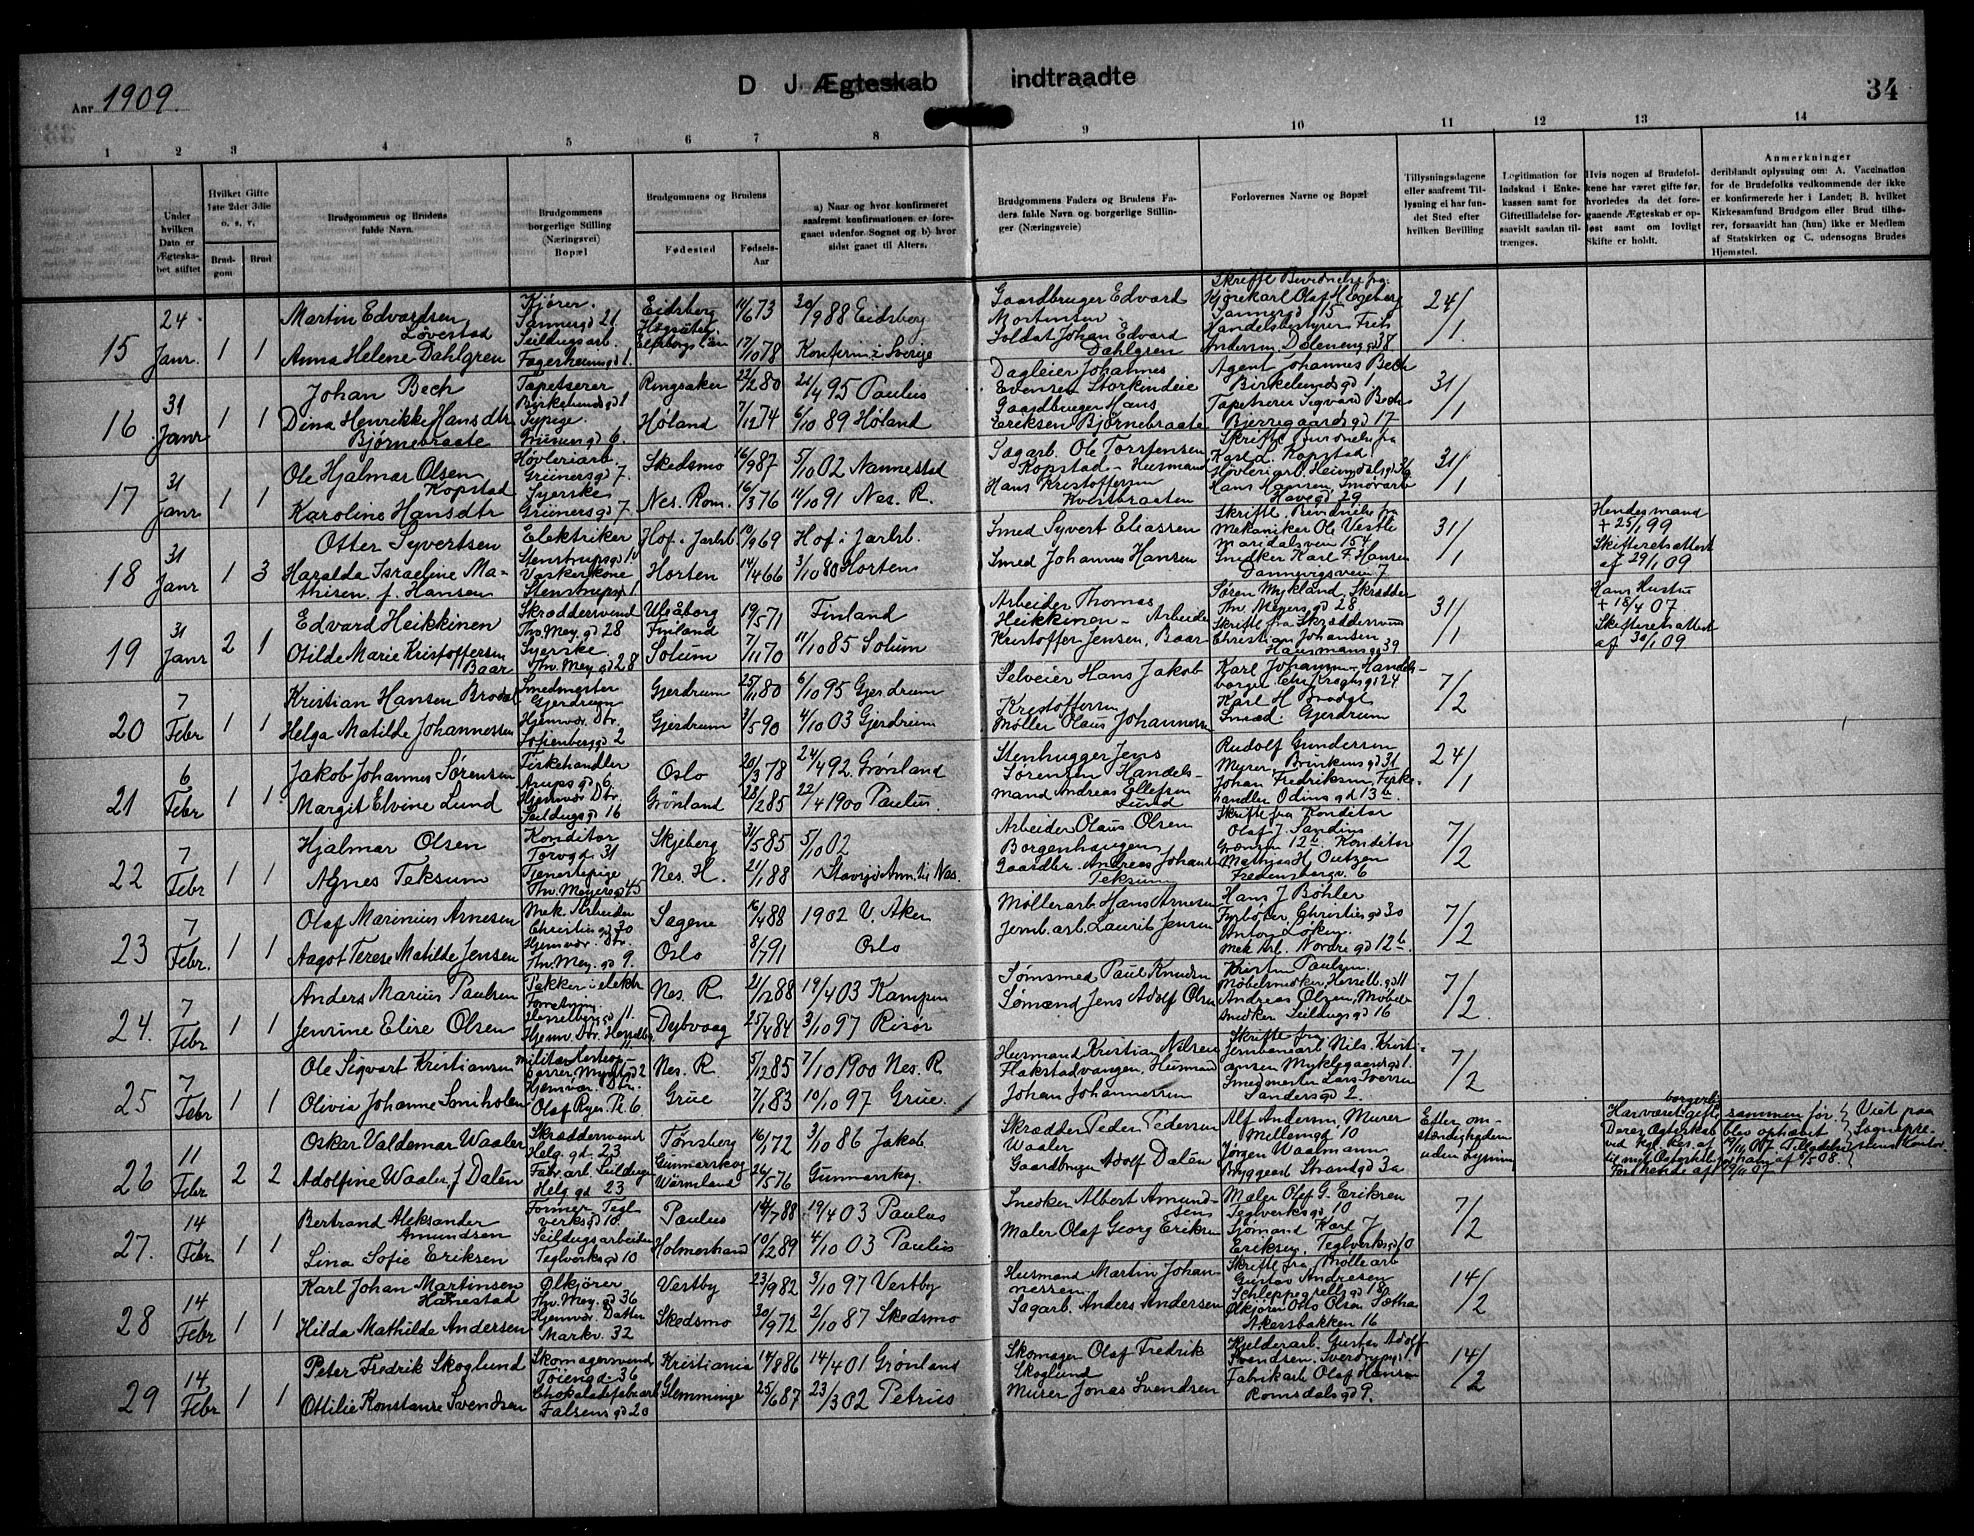 Aar 1909.
D J. Ægteskab indtraadte
34
1 2 3 4 5 6 7 8 9 10 11 12 13 14
Under hvilken Dato er Ægteskabet stiftet
Hvilket Gifte 1ste 2det 3die o. s. v.
Brudgom
Brud
Brudgommens og Brudens fulde Navn.
Brudgommens borgerlige Stilling (Næringsvei) Bopæl
Brudgommens og Brudens
Fødested
Fødsels-Aar
a) Naar og hvor konfirmeret saafremt konfirmationen er foregaaet udenfor Sognet og b) hvor sidst gaaet til Alters.
Brudgommens Faders og Brudens Faders fulde Navn og borgerlige Stillinger (Næringsveie)
Forlovernes Navne og Bopæl
Tillysningsdagene eller saafremt Tillysning ei har fundet Sted efter hvilken Bevilling
Legitimation for Indskud i Enkekassen samt for Giftetilladelse forsaavidt saadan tiltrænges.
Hvis nogen af Brudefolkene har været gifte før, hvorledes da det foregaaende Ægteskab er opløst samt om lovligt Skifte er holdt.
Anmerkninger
deriblandt oplysning om: A. Vaccination for de Brudefolks vedkommende der ikke er konfirmerede her i Landet; B. hvilket Kirkesamfund Brudgom eller Brud tilhører, forsaavidt han (hun) ikke er Medlem af Statskirken og C. udensogns Brudes Hjemsted.
15 24 Janr. 1 1
Martin Edvardsen Løvestad
Kjører. Sannergd 21
Eidsberg 14/6 73 30/9 88 Eidsberg
Gaardbruger Edvard Mortensen
Skriftl Bevidnelse fra: Kjørekarl Olaf H Egeberg Sannergd 15
24/1.
Anna Helene Dahlgren
Seildugsarb. Fagerheimgd 1.
Elfsborgs Län 17/10 78 Konfirm. i Sverige
Soldat Johan Edvard Dahlgren
Handelsbestyrer Frits Andersen. Dælenengd 38
16 31 Janr 1 1
Johan Bech
Tapetserer Birkelundsgd 1
Ringsaker 22/2 80 21/4 95 Paulus
Dagleier Johannes Evensen Storkendeie
Agent Johannes Bech Birkelundsgd 1,
31/1
Dina Henrikke Hansdtr Bjørnebraate
Sypige. Grünersgd 6.
Høland 7/12 74 6/10 89 Høland
Gaardbruger Hans Eriksen Bjørnebraate
Tapetserer Sigvard Bech Bjerregaardsgd 17
17 31 Janr 1 1
Ole Hjalmar Olsen Kopstad
Høvleriarb. Grünersgd 7.
Skedsmo 16/9 87 5/10 02 Nannestad
Sagarb. Ole Torstensen Kopstad - Husmand
Skriftl. Bevidnelse fra Karl L. Kopstad Høvleriarb. Heimdalsgd 36
31/1
Karoline Hansdtr
Syerske Grünersgd 7
Nes. Rom. 16/3 76 11/10 91 Nes. R.
Hans Kristoffersen Kvistbraaten
Hans Hansen, Smørarb Havegd 29
18 31 Janr 1 3
Otter Syvertsen
Elektriker Stenstrupsgd 14
Hof i Jarlsb 10/9 69 Hof i Jarlsb.
Smed Syvert Eliassen
Skriftl. Bevidnelse fra Mekaniker Ole Vestli Maridalsvein 154
31/1
Hendes mand + 25/1 99 Skifteretsattest af 29/1 09
Haralda Israeline Mathisen f. Hansen
Vaskerkone Stenstrupsgd 1.
Horten 14/4 66 3/10 80 Horten
Smed Johannes Hansen
Snedker Karl F. Hansen Dannevigsveien 7
19 31 Janr 2 1
Edvard Heikkinen
Skræddersvend Th. Mey. gd 28
Uleåborg Finland 19/5 71 Finland
Arbeider Thomas Heikkinen - Arbeider
Søren Mykland, Skrædder Th. Meyers gd 28
31/1
Hans Hustru + 18/4 07. Skifteretsattest af 30/1 09
Otilde Marie Kristoffersen Baar
Syerske. Th. Mey gd 28
Solum 7/11 70 11/10 85 Solum
Kristoffer Jensen, Baar
Skriftl fra Skræddersvend Christian Johansen Hausmansgd 39
20 7 Febr 1 1
Kristian Hansen Brodal
Smedmester Gjerdrum
Gjerdrum 25/1 80 6/10 95 Gjerdrum
Selveier Hans Jakob Kristoffersen
Karl Johansen - Handelsborger. Chr. Kroghsgd 24
7/2
Helga Matilde Johannessen
Hjemvær. Dtr. Sofienberggd 2
Gjerdrum 3/5 90 4/10 03 Gjerdrum
Møller Olaus Johannessen
Karl H Brodal Smed. Gjerdrum
21 6 Febr 1 1
Jakob Johannes Sørensen
Fiskehandler Arupsgd 6
Oslo 20/3 78 24/4 92. Grønland
Stenhugger Jens Sørensen Handelsmand Andreas Ellefsen Lund
Rudolf Gundersen Murer. Brinkens gd 31
24/1
Margit Elvine Lund
Hjemvær Dtr. Seildugsgd 16
Grønland 28/2 85 22/4 1900 Paulus.
Johan Fredriksen, Fiskehandler Odins gd 13b.
22 7 Febr 1 1
Hjalmar Olsen
Konditor Torvgd. 31
Skjeberg 31/5 85 5/10 02
Arbeider Olaus Olsen Borgenhaugen
Skriftl fra Konditor Olaf J. Sandin Grænsen 12
7/2
Agnes Teksum
Tjenestepige Th. Meyersgd 45
Nes. H. 21/1 88 Stavsjø Ann. til Nes.
Gaardbr. Andreas Johans Teksum
Konditor Mathias H Outzen Fredensborgv. 6
23 7 Febr. 1 1
Olaf Marinius Arnesen
Mek. Arbeider Christiesgd 30
Sagene 16/4 88 1902 V. Aker
Møllerarb. Hans Arnesen
Hans J Bøhler Fyrbøter, Christiesgd 30
7/2
Aagot Terese Matilde Jensen
Hjemvær. Dtr. Th. Mey. gd 9.
Oslo 8/7 91 Oslo
Jernb. arb. Laurits Jensen
Anton Løken. Mek. Arb. Nordregd 12b.
24. 7 Febr 1 1
Anders Marius Paulsen
Pakker i elektr Forretning. Hesselbergsgd 11.
Nes. R. 21/12 88 19/4 03 Kampen
Sømsmed Paul Knudsen
Kristen Paulsen. Møbelsnedker, Hesselb. gd 11
7/2.
Jensine Elise Olsen
Hjemv. Dtr. Hesselb. 11
Dybvaag 25/4 84 3/10 97 Risør
Sømand Jens Adolf Olsen
Andreas Olsen, Møbelsnedker Seildugsgd 16
25 7 Febr 1 1
Ole Sigvart Kristiansen
Nes. R. 5/12 85 7/10 1900 Nes. R
Husmand Kristian Nilsen Flakstadvangen, Husmand
Skriftl fra Jernbanearb Nils. Kristiansen Myklegaardsgd 1.
7/2
Olivia Johanne Smiholen
Hjemvær Dtr. Olaf Ryes Pl. 6.
Grue 7/1 83 10/10 97 Grue.
Johan Johannessen
Smedmester Lars Iversen Sandersgd 2.
26 11 Febr 2 2
Oskar Valdemar Waaler
Skræddersvend Helg. gd. 23
Tønsberg 16/1 72 3/10 86 Jakob
Skrædder Peder Pedersen Waaler
Alf Andersen, Murer Mellemgd 10
Efter omstændigheden uden Lysning
Har været borgerlig gift sammen før. Deres Ægteskab blev ophævet ved kgl. res. af 19/11 07.
Viet paa Sogneprestens Kontor
Adolfine Waaler, f Dalén
Fabr. arb. Seildugen Helg. gd 23
Gunnarskog Wärmland 26/5 76 Gunnarskog.
Gaardbruger Adolf Dalén
Jørgen Waalmann Bryggearb Strandgd 3a
27. 14 Febr 1 1
Bertrand Aleksander Amundsen
Former. Teglverksgd 10.
Paulus 14/7 88 19/4 03 Paulus
Snedker Albert Amundsen
Maler Olaf G. Eriksen Teglverksgd 10
7/2
Lina Sofie Eriksen
Seildugsarbeider Teglverksgd 10
Holmestrand 10/2 89 4/10 03 Paulus
Maler Olaf Georg Eriksen
Sjømand Karl Eriksen. Teglverksgd 10
28 14 Febr 1 1
Karl Johan Martinsen Hanestad
Ølkjører Th. Mey. gd 36
Vestby 23/9 82 3/10 97 Vestby
Husmand Martin Johannessen.
Skriftl fra Møllearb Gustav Andresen Schleppegrellsgd 18
14/2
Hilda Mathilde Andersen
Hjemvær. Datter Markv. 32
Skedsmo 30/9 72 2/10 87 Skedsmo
Sagarb. Anders Andersen
Ølkjører Otto Olsen Sætha Akersbakken 16
29 14 Febr 1 1
Peter Fredrik Skoglund
Skomagersvend Tøiengd. 36
Kristiania 14/8 86 14/4 01 Grønland
Skomager Olaf Fredrik Skoglund
Kjelderarb. Gustav Adolf Svendsen. Sverdrupsgd 1.
14/2
Ottilie Konstanse Svendsen
Chokoladefabrarb Falsensgd 20
Glemminge 25/6 87 23/3 02 Petrus
Murer Jonas Svendsen
Fabrikarb. Olaf Hansen Romsdalsgd 9.